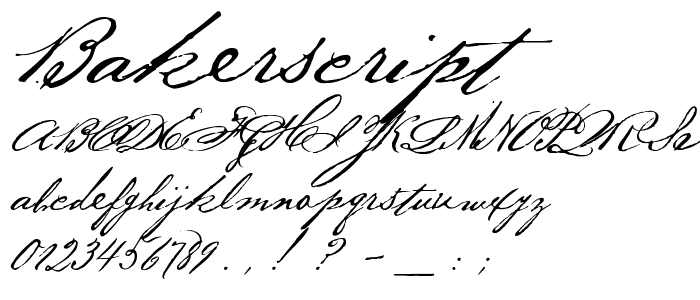 Bakerscript
ABCDEFGHIJKLMNOPQRS
abcdefghijklmnopqrstuvwxyz
0123456789 . , ! ? - _ : ;